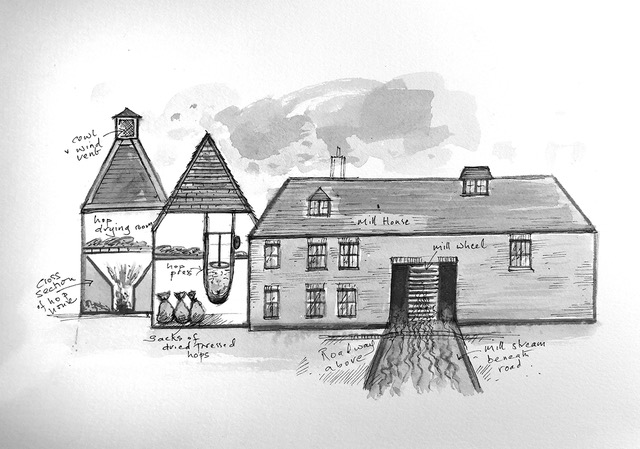 cowl
+ wind
vent
hop
drying room
Cross
section
of hop
house
hop
press
Sacks of
dried Pressed
hops
Mill House
mill wheel
Roadway
above
mill stream
beneath
road.